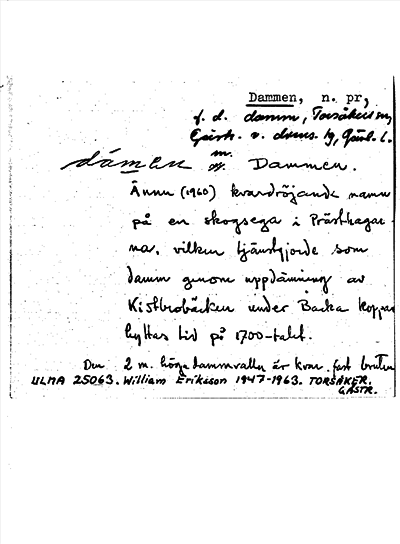 Dammen, n. pr,
f. d. damm, Torsåkers sn,
Gästr. v. doms. tg, Gävl. l.
dámen m. Dammen.
Ännu (1960) kvardröjande namn
på en skogsega i Prästhagar-
na, vilken tjänstgjorde som
damm genom uppdämning av
Kistbrobäcken under Backa koppar
hyttas tid på 1700-talet.
Den 2 m. höga dammvallen är kvar fast bruten
ULMA 25063. William Eriksson 1947-1963. TORSÅKER.
GÄSTR.